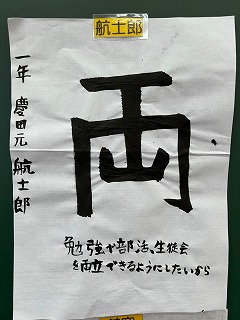 航士郎
両
一年 慶田元 航士郎
勉強や部活、生徒会
を両立できるようにしたいから